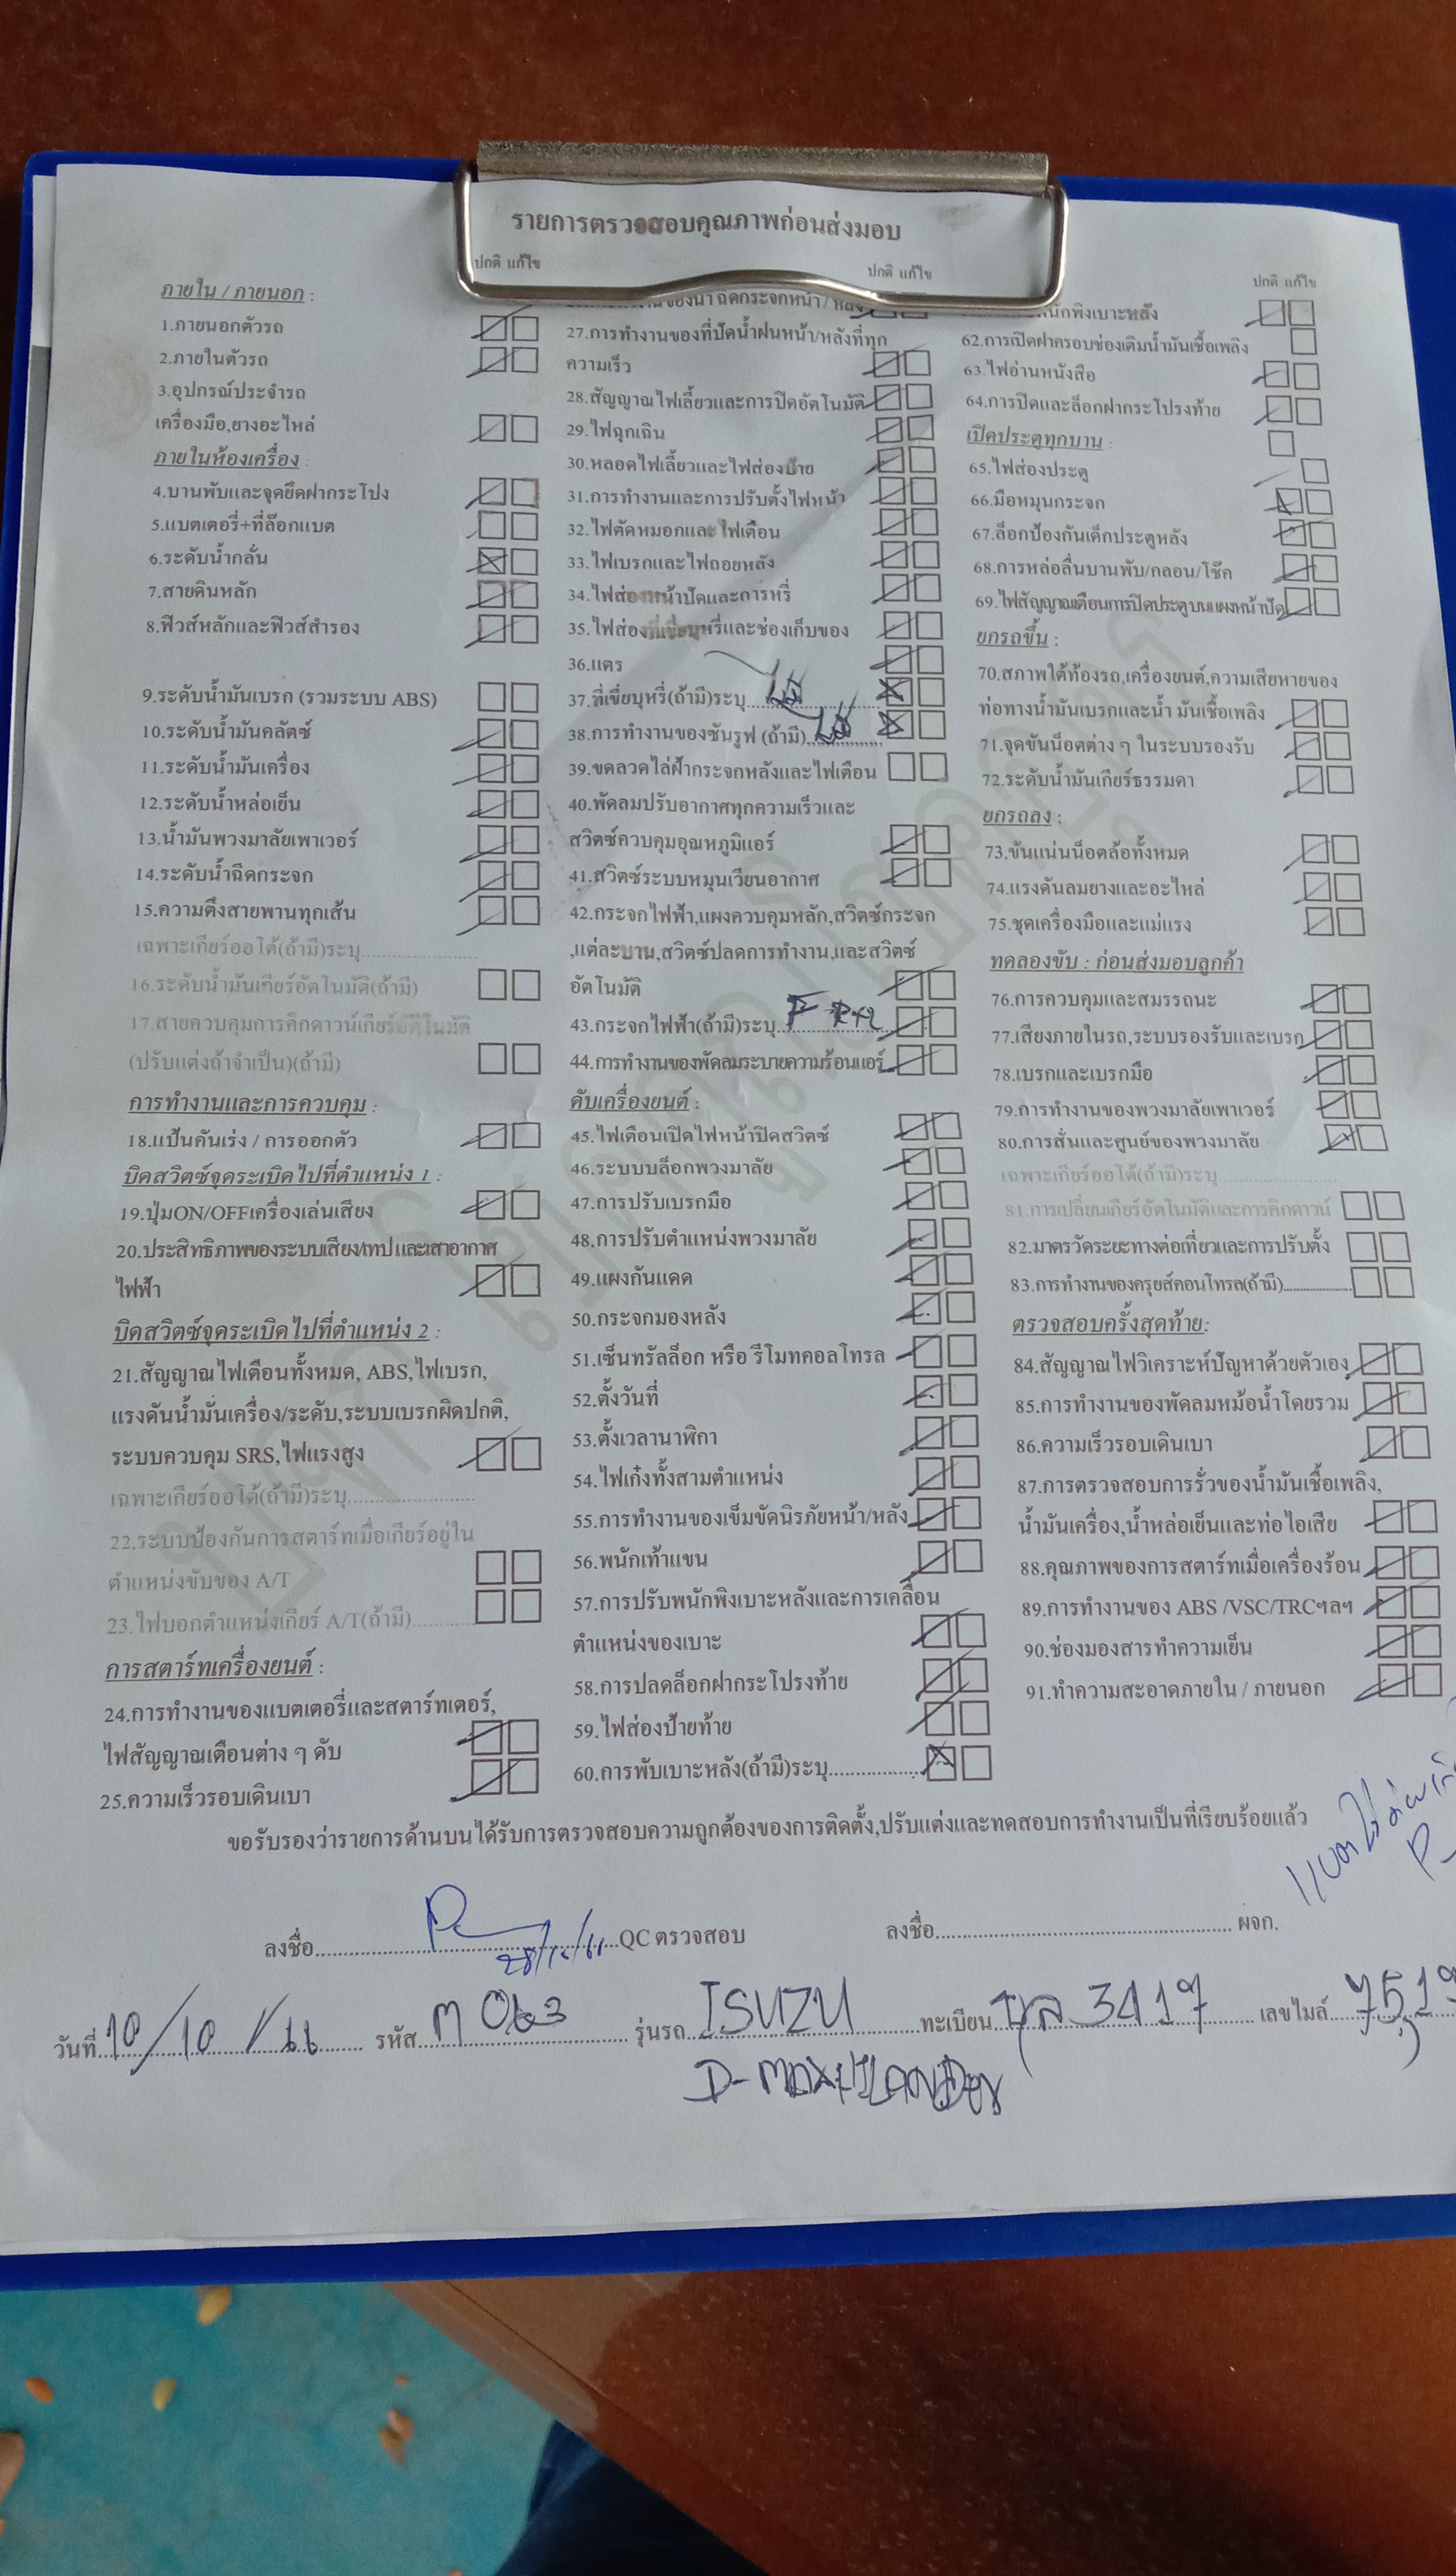 รายการตรวจสอบคุณภาพก่อนส่งมอบ
ปกติ แก้ไข
ภายใน / ภายนอก :
1.ภายนอกตัวรถ
2.ภายในตัวรถ
3.อุปกรณ์ประจำรถ
เครื่องมือ,ยางอะไหล่
ภายในห้องเครื่อง :
4.บานพับและจุดยึดฝากระโปง
5.แบตเตอรี่+ที่ล๊อกแบต
6.ระดับน้ำกลั่น
7.สายดินหลัก
8.ฟิวส์หลักและฟิวส์สำรอง
9.ระดับน้ำมันเบรก (รวมระบบ ABS)
10.ระดับน้ำมันคลัตซ์
11.ระดับน้ำมันเครื่อง
12.ระดับน้ำหล่อเย็น
13.น้ำมันพวงมาลัยเพาเวอร์
14.ระดับน้ำฉีดกระจก
15.ความตึงสายพานทุกเส้น
เฉพาะเกียร์ออโต้(ถ้ามี)ระบุ
16.ระดับน้ำมันเกียร์อัตโนมัติ(ถ้ามี)
17.สายควบคุมการคิกดาวน์เกียร์อัติโนมัติ
(ปรับแต่งถ้าจำเป็น)(ถ้ามี)
การทำงานและการควบคุม :
18.แป้นคันเร่ง / การออกตัว
บิดสวิตซ์จุดระเบิดไปที่ตำแหน่ง 1 :
19.ปุ่มON/OFFเครื่องเล่นเสียง
20.ประสิทธิภาพของระบบเสียง/เทป และเสาอากาศ
ไฟฟ้า
บิดสวิตซ์จุดระเบิดไปที่ตำแหน่ง 2 :
21.สัญญาณไฟเตือนทั้งหมด, ABS,ไฟเบรก,
แรงดันน้ำมั่นเครื่อง/ระดับ,ระบบเบรกผิดปกติ,
ระบบควบคุม SRS,ไฟแรงสูง
เฉพาะเกียร์ออโต้(ถ้ามี)ระบุ
22.ระบบป้องกันการสตาร์ทเมื่อเกียร์อยู่ใน
ตำแหน่งขับของ A/T
23.ไฟบอกตำแหน่งเกียร์ A/T(ถ้ามี)
การสตาร์ทเครื่องยนต์ :
24.การทำงานของแบตเตอรี่และสตาร์ทเตอร์,
ไฟสัญญาณเตือนต่าง ๆ ดับ
25.ความเร็วรอบเดินเบา
ปกติ แก้ไข
27.การทำงานของที่ปัดน้ำฝนหน้า/หลังที่ทุก
ความเร็ว
28.สัญญาณไฟเลี้ยวและการปิดอัตโนมัติ
29.ไฟฉุกเฉิน
30.หลอดไฟเลี้ยวและไฟส่องป้าย
31.การทำงานและการปรับตั้งไฟหน้า
32.ไฟตัดหมอกและไฟเตือน
33.ไฟเบรกและไฟถอยหลัง
34.ไฟส่องหน้าปัดและการหรี่
35.ไฟส่องที่เขี่ยบุหรี่และช่องเก็บของ
36.แตร
37.ที่เขี่ยบุหรี่(ถ้ามี)ระบุ
38.การทำงานของซันรูฟ (ถ้ามี)
39.ขดลวดไล่ฝ้ากระจกหลังและไฟเตือน
40.พัดลมปรับอากาศทุกความเร็วและ
สวิตซ์ควบคุมอุณหภูมิแอร์
41.สวิตซ์ระบบหมุนเวียนอากาศ
42.กระจกไฟฟ้า,แผงควบคุมหลัก,สวิตซ์กระจก
,แต่ละบาน,สวิตซ์ปลดการทำงาน,และสวิตซ์
อัตโนมัติ
43.กระจกไฟฟ้า(ถ้ามี)ระบุ
44.การทำงานของพัดลมระบายความร้อนแอร์
ดับเครื่องยนต์ :
45.ไฟเตือนเปิดไฟหน้าปิดสวิตซ์
46.ระบบบล็อกพวงมาลัย
47.การปรับเบรกมือ
48.การปรับตำแหน่งพวงมาลัย
49.แผงกันแดด
50.กระจกมองหลัง
51.เซ็นทรัลล็อก หรือ รีโมทคอลโทรล
52.ตั้งวันที่
53.ตั้งเวลานาฬิกา
54.ไฟเก๋งทั้งสามตำแหน่ง
55.การทำงานของเข็มขัดนิรภัยหน้า/หลัง
56.พนักเท้าแขน
57.การปรับพนักพิงเบาะหลังและการเคลื่อน
ตำแหน่งของเบาะ
58.การปลดล็อกฝากระโปรงท้าย
59.ไฟส่องป้ายท้าย
60.การพับเบาะหลัง(ถ้ามี)ระบุ
ปกติ แก้ไข
62.การเปิดฝาครอบช่องเติมน้ำมันเชื้อเพลิง
63.ไฟอ่านหนังสือ
64.การปิดและล็อกฝากระโปรงท้าย
เปิดประตูทุกบาน :
65.ไฟส่องประตู
66.มือหมุนกระจก
67.ล็อกป้องกันเด็กประตูหลัง
68.การหล่อลื่นบานพับ/กลอน/โช๊ค
69.ไฟสัญญาณเตือนการปิดประตูบนแผงหน้าปัด
ยกรถขึ้น :
70.สภาพใต้ท้องรถ,เครื่องยนต์,ความเสียหายของ
ท่อทางน้ำมันเบรกและน้ำ มันเชื้อเพลิง
71.จุดขันน็อตต่าง ๆ ในระบบรองรับ
72.ระดับน้ำมันเกียร์ธรรมดา
ยกรถลง :
73.ขันแน่นน็อตล้อทั้งหมด
74.แรงดันลมยางและอะไหล่
75.ชุดเครื่องมือและแม่แรง
ทดลองขับ : ก่อนส่งมอบลูกค้า
76.การควบคุมและสมรรถนะ
77.เสียงภายในรถ,ระบบรองรับและเบรก
78.เบรกและเบรกมือ
79.การทำงานของพวงมาลัยเพาเวอร์
80.การสั่นและศูนย์ของพวงมาลัย
เฉพาะเกียร์ออโต้(ถ้ามี)ระบุ
81.การเปลี่ยนเกียร์อัตโนมัติและการคิกดาวน์
82.มาตรวัดระยะทางต่อเที่ยวและการปรับตั้ง
83.การทำงานของครุยส์คอนโทรล(ถ้ามี)
ตรวจสอบครั้งสุดท้าย:
84.สัญญาณไฟวิเคราะห์ปัญหาด้วยตัวเอง
85.การทำงานของพัดลมหม้อน้ำโดยรวม
86.ความเร็วรอบเดินเบา
87.การตรวจสอบการรั่วของน้ำมันเชื้อเพลิง,
น้ำมันเครื่อง,น้ำหล่อเย็นและท่อไอเสีย
88.คุณภาพของการสตาร์ทเมื่อเครื่องร้อน
89.การทำงานของ ABS /VSC/TRCฯลฯ
90.ช่องมองสารทำความเย็น
91.ทำความสะอาดภายใน / ภายนอก
ขอรับรองว่ารายการด้านบนได้รับการตรวจสอบความถูกต้องของการติดตั้ง,ปรับแต่งและทดสอบการทำงานเป็นที่เรียบร้อยแล้ว
ลงชื่อ QC ตรวจสอบ ลงชื่อ ผจก.
วันที่ 10/10/66 รหัส M 063 รุ่นรถ ISUZU ทะเบียน 3417 เลขไมล์
D-MAX